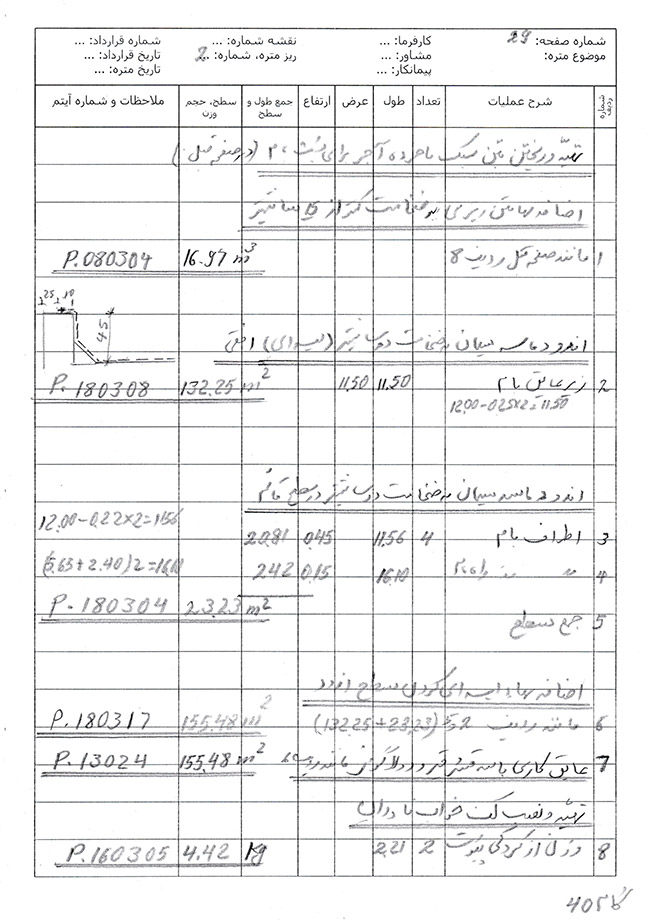 شماره صفحه: 29 کارفرما: ... نقشه شماره: ... شماره قرارداد: ...
موضوع متره: مشاور: ... ریز متره، شماره: 2.. تاریخ قرارداد: ...
پیمانکار: ... تاریخ متره: ...
شماره ردیف شرح عملیات تعداد طول عرض ارتفاع جمع طول و سطح سطح، حجم وزن ملاحظات و شماره آیتم
تهیه و ریختن بتن سبک با خرده آجر برای (در صفحه قبل)
اضافه بها بتن ریزی به ضخامت کمتر از 15 سانتیمتر
1 مانند صفحه قبل ردیف 8 16.97 m³ P.080304
25 10
45
اندود ماسه سیمان به ضخامت دو سانتیمتر (لیسه ای) افقی
2 زیر عایق بام 11.50 11.50 132.25 m² P.180308
12.00-0.25x2=11.50
اندود ماسه سیمان به ضخامت دو سانتیمتر در سطح قائم
12.00-0.22x2=11.56
3 اطراف بام 4 11.56 0.45 20.81
4 16.10 0.15 2.42 (5.65+2.40)2=16.10
5 جمع سطح 23.23 m² P.180304
اضافه بها لیسه ای کردن سطح اندود
6 مانند ردیف 2 و 5 (132.25+23.23) 155.48 m² P.180317
7 عایق کاری با سه قشر قیر و دو لا گونی مانند ردیف 6 155.48 m² P.13024
تهیه و نصب کف خواب ناودان
8 وزن از 2 2.21 4.42 Kg P.160305